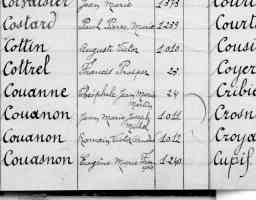 Jean Marie 1373
Costard Paul Pierre Marie 1233 Court
Cottin Auguste Victor 1010 Cousi
Cottrel Francis Prosper 23 Coyer
Couanne Théophile Jean Marie 24 Cribie
Couanon Jean Marie Joseph 1011 Crosn
Couanon Romain Victor 1012 Croya
Couasnon Eugène Marie Fran 1240 Cupif